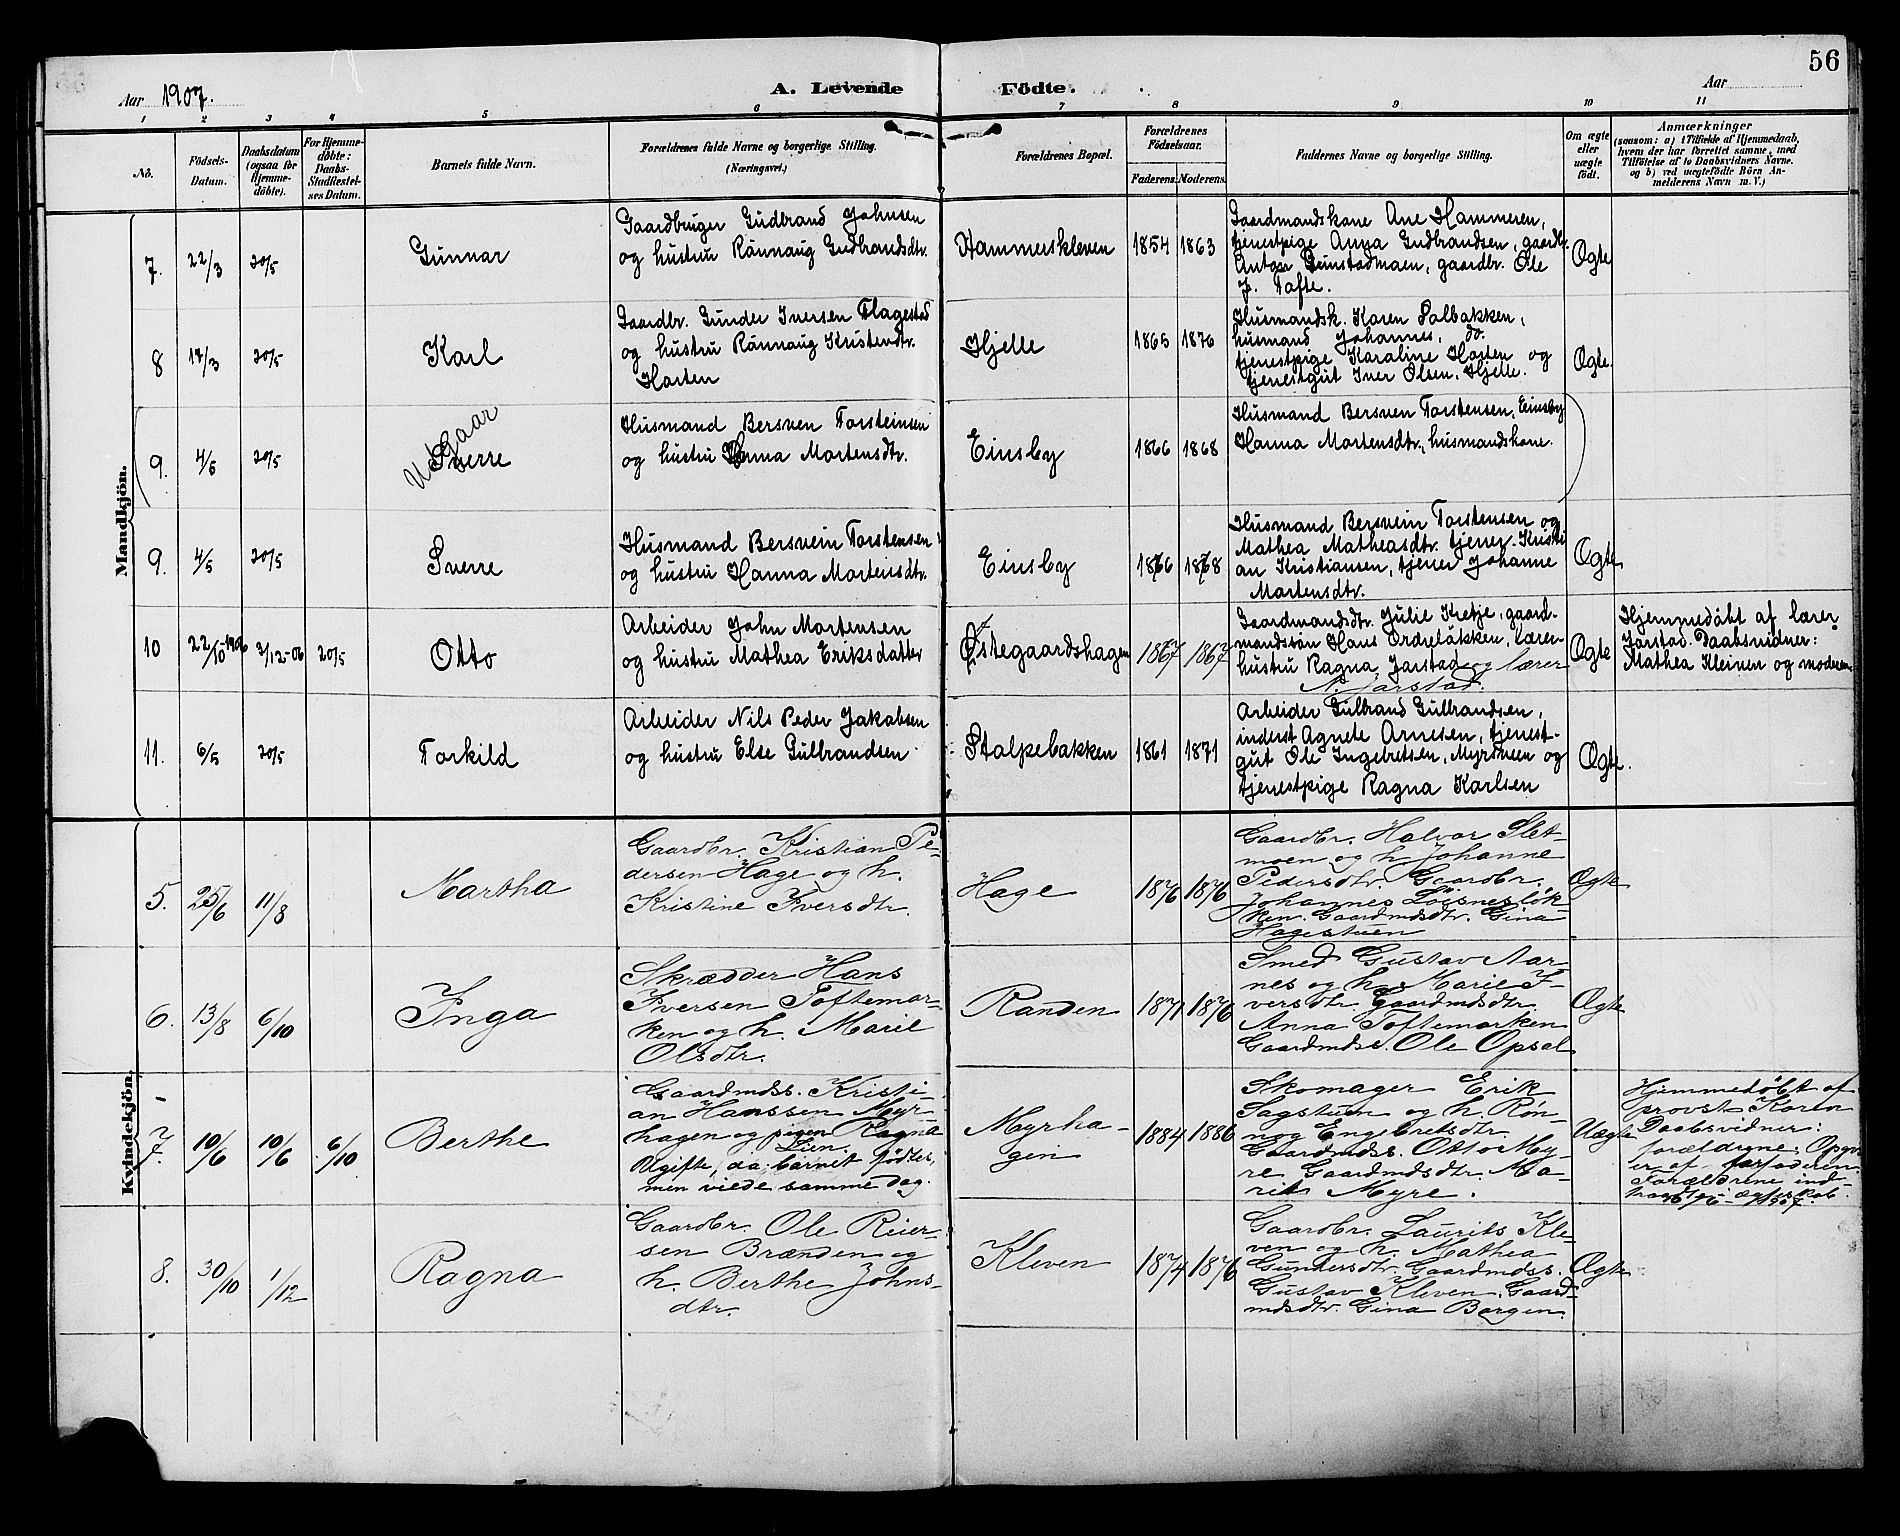 56
Aar 1907.
A. Levende Fødte.
Aar
1 2 3 4 5 6 7 8 9 10 11
No.
Födsels-Datum.
Daabsdatum (ogsaa for Hjemme-döbte).
For Hjemme-döbte: Daabs-Stadfæstel-ses Datum.
Barnets fulde Navn.
Forældrenes fulde Navne og borgerlige Stilling. (Næringsvei.)
Forældrenes Bopæl.
Forældrenes Födselsaar.
Faderens. Moderens.
Faddernes Navne og borgerlige Stilling.
Om ægte eller uægte födt.
Anmærkninger
(saasom: a) i Tilfælde af Hjemmedaab,
hvem der har forrettet samme, med
Tilföielse af to Daabsvidners Navne.
og b) ved uægtefödte Börn An-
melderens Navn m. V.)
Mandkjön.
7. 22/3 20/5 Gunnar
Gaardbruger Gudbrand Johnsen
og hustru Rönnaug Gudbrandsdtr.
Hammerskleven 1854 1863
Gaardmandskone Ane Hammeren,
tjenestpige Anna Gudbrandsen, gaardbr.
Anton Beinstadmoen, gaardbr. Ole
J. Tofte.
Ægte
8 17/3 20/5 Karl
Gaardbr. Gunder Iversen Flagestad
og hustru Rönnaug Kristendtr.
Horten
Hjelle 1865 1876
Husmandsk. Karen Solbakken,
husmand Johannes, do
tjenestpige Karoline Horten og
tjenestgut Iver Olsen, Hjelle.
Ægte.
9. 4/5 20/5 Sverre
Utgaar
Husmand Bersven Torsteinsen
og hustru Hanna Mortensdtr.
Einsby 1866 1868
Husmand Bersven Torstensen, Einsby
Hanna Mortensdtr, husmandskone.
9. 4/5 20/5 Sverre
Husmand Bersvein Torstensen
og hustru Hanna Mortensdtr.
Einsby 1866 1868
Husmand Bersvein Torstensen og
Mathea Matheasdtr. tjener Kristi
an Kristiansen, tjener Johanne
Mortensdtr.
Ægte
10 22/10 1906 2/12-06 20/5 Otto
Arbeider John Mortensen
og hustru Mathea Eriksdatter
Østegaardshagen 1867 1867
Gaardmandsdtr. Julie Kretje, gaard-
mandsøn Hans Ordreløkken, lærer-
hustru Ragna Jarstad og lærer
N. Jarstad.
Ægte
Hjemmedöbt af lærer
Jarstad. Daabsvidner:
Mathea Kleinen og moderen
11. 6/5 20/5 Torkild
Arbeider Nils Peder Jakobsen
og hustru Else Gulbrandsen
Stolpebakken 1861 1871
Arbeider Gulbrand Gulbrandsen,
inderst Agnete Arnesen, tjenest-
gut Ole Ingebretsen, Myrsveen og
tjenestpige Ragna Karlsen
Ægte.
Kvindekjön.
5. 25/6 11/8 Martha
Gaardbr. Kristian Pe-
dersen Hage og h.
Kristine Iversdtr.
Hage 1876 1876
Gaardbr. Halvor Slet-
moen og h. Johanne
Pedersdtr. Gaardbr.
Johannes Löisneslök-
ken. Gaardmdsdtr. Gina
Hagestuen
Ægte
6. 13/8 6/10 Inga
Skrædder Hans
Iversen Toftemar-
ken og h. Marie
Olsdtr.
Randen 1871 1876
Smed Gustav Aar-
nes og h. Marie I-
versdtr. Gaardmdsdtr.
Anna Toftemarken
Gaardmdss. Ole Opsal
Ægte
7. 10/6 10/6 6/10 Berthe
Gaardmdss. Kristi-
an Hanssen Myr-
hagen og pigen Ragna
Lien.
Ugifte, da barnet födtes,
men viede samme dag.
Myrha-
gen 1884 1886
Skomager Erik
Sagstuen og h. Rön-
nog Engebretsdtr.
Gaardmdss. Otto My-
re. Gaardmdsdtr. Ma-
rit Myre.
Uægte
Hjemmedöbt af
provst Koren
Daabsvidner:
forældrene. Opgiv
er af farfaderen
Forældrene ind-
1907.
8. 30/10 1/12 Ragna
Gaardbr. Ole Reier-
sen Brænden og
h. Berthe Johns-
dtr.
Kleven 1874 1876
Gaardbr. Laurits Kle-
ven og h. Mathea
Gundersdtr. Gaardmdss.
Gustav Kleven. Gaard-
mdsdtr. Gina Borgen.
Ægte